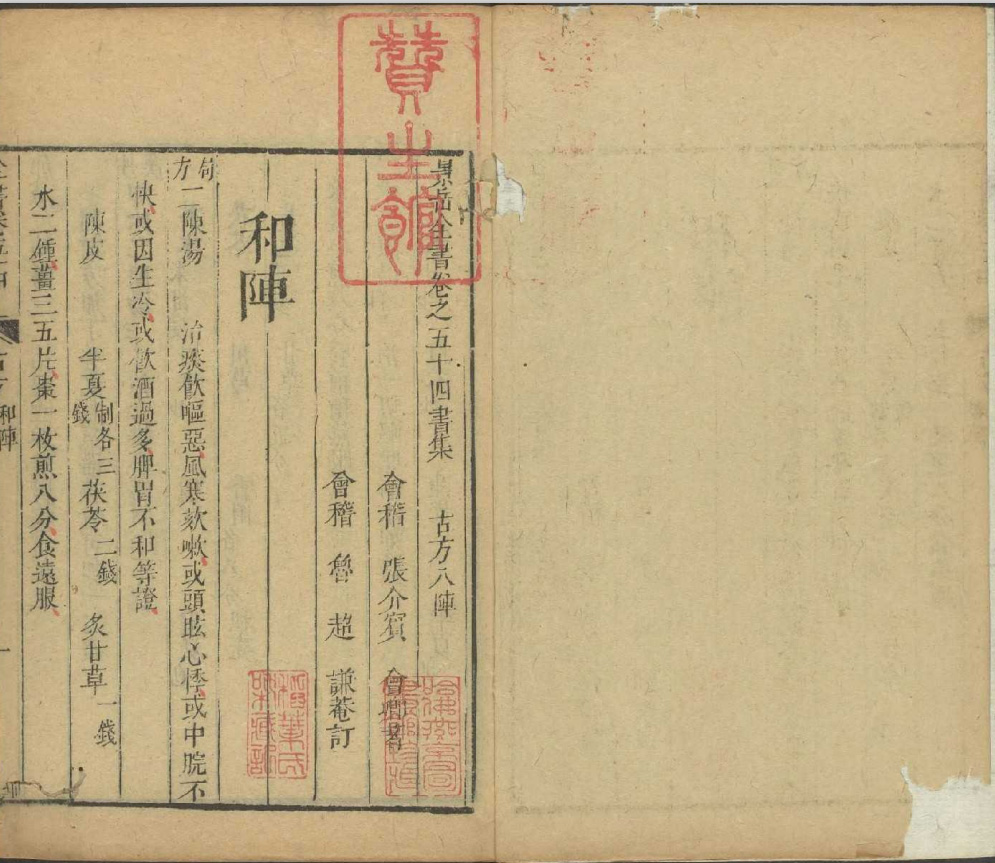 景岳全書卷之五十四書集 古方八陣
會稽 張介賓 會卿著
會稽 魯超 謙菴訂
和陣
二陳湯 治痰飲嘔惡風寒欬嗽或頭眩心悸或中脘不
快或因生冷或飲酒過多脾胃不和等證
陳皮 半夏制各三錢 茯苓二錢 炙甘草一錢
水二鍾薑三五片棗一枚煎八分食遠服
和陣
一
贊生館